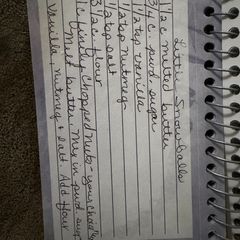 Little Snowballs
1/2 c melted butter
3/4 c pwd. sugar
1 1/2 tsp vanilla
1/2 tsp nutmeg
1/2 tsp salt
3 1/2 c flour
1 c finely chopped nuts - your choice
Melt butter mix in pwd sugar
Vanilla, nutmeg & salt Add flour